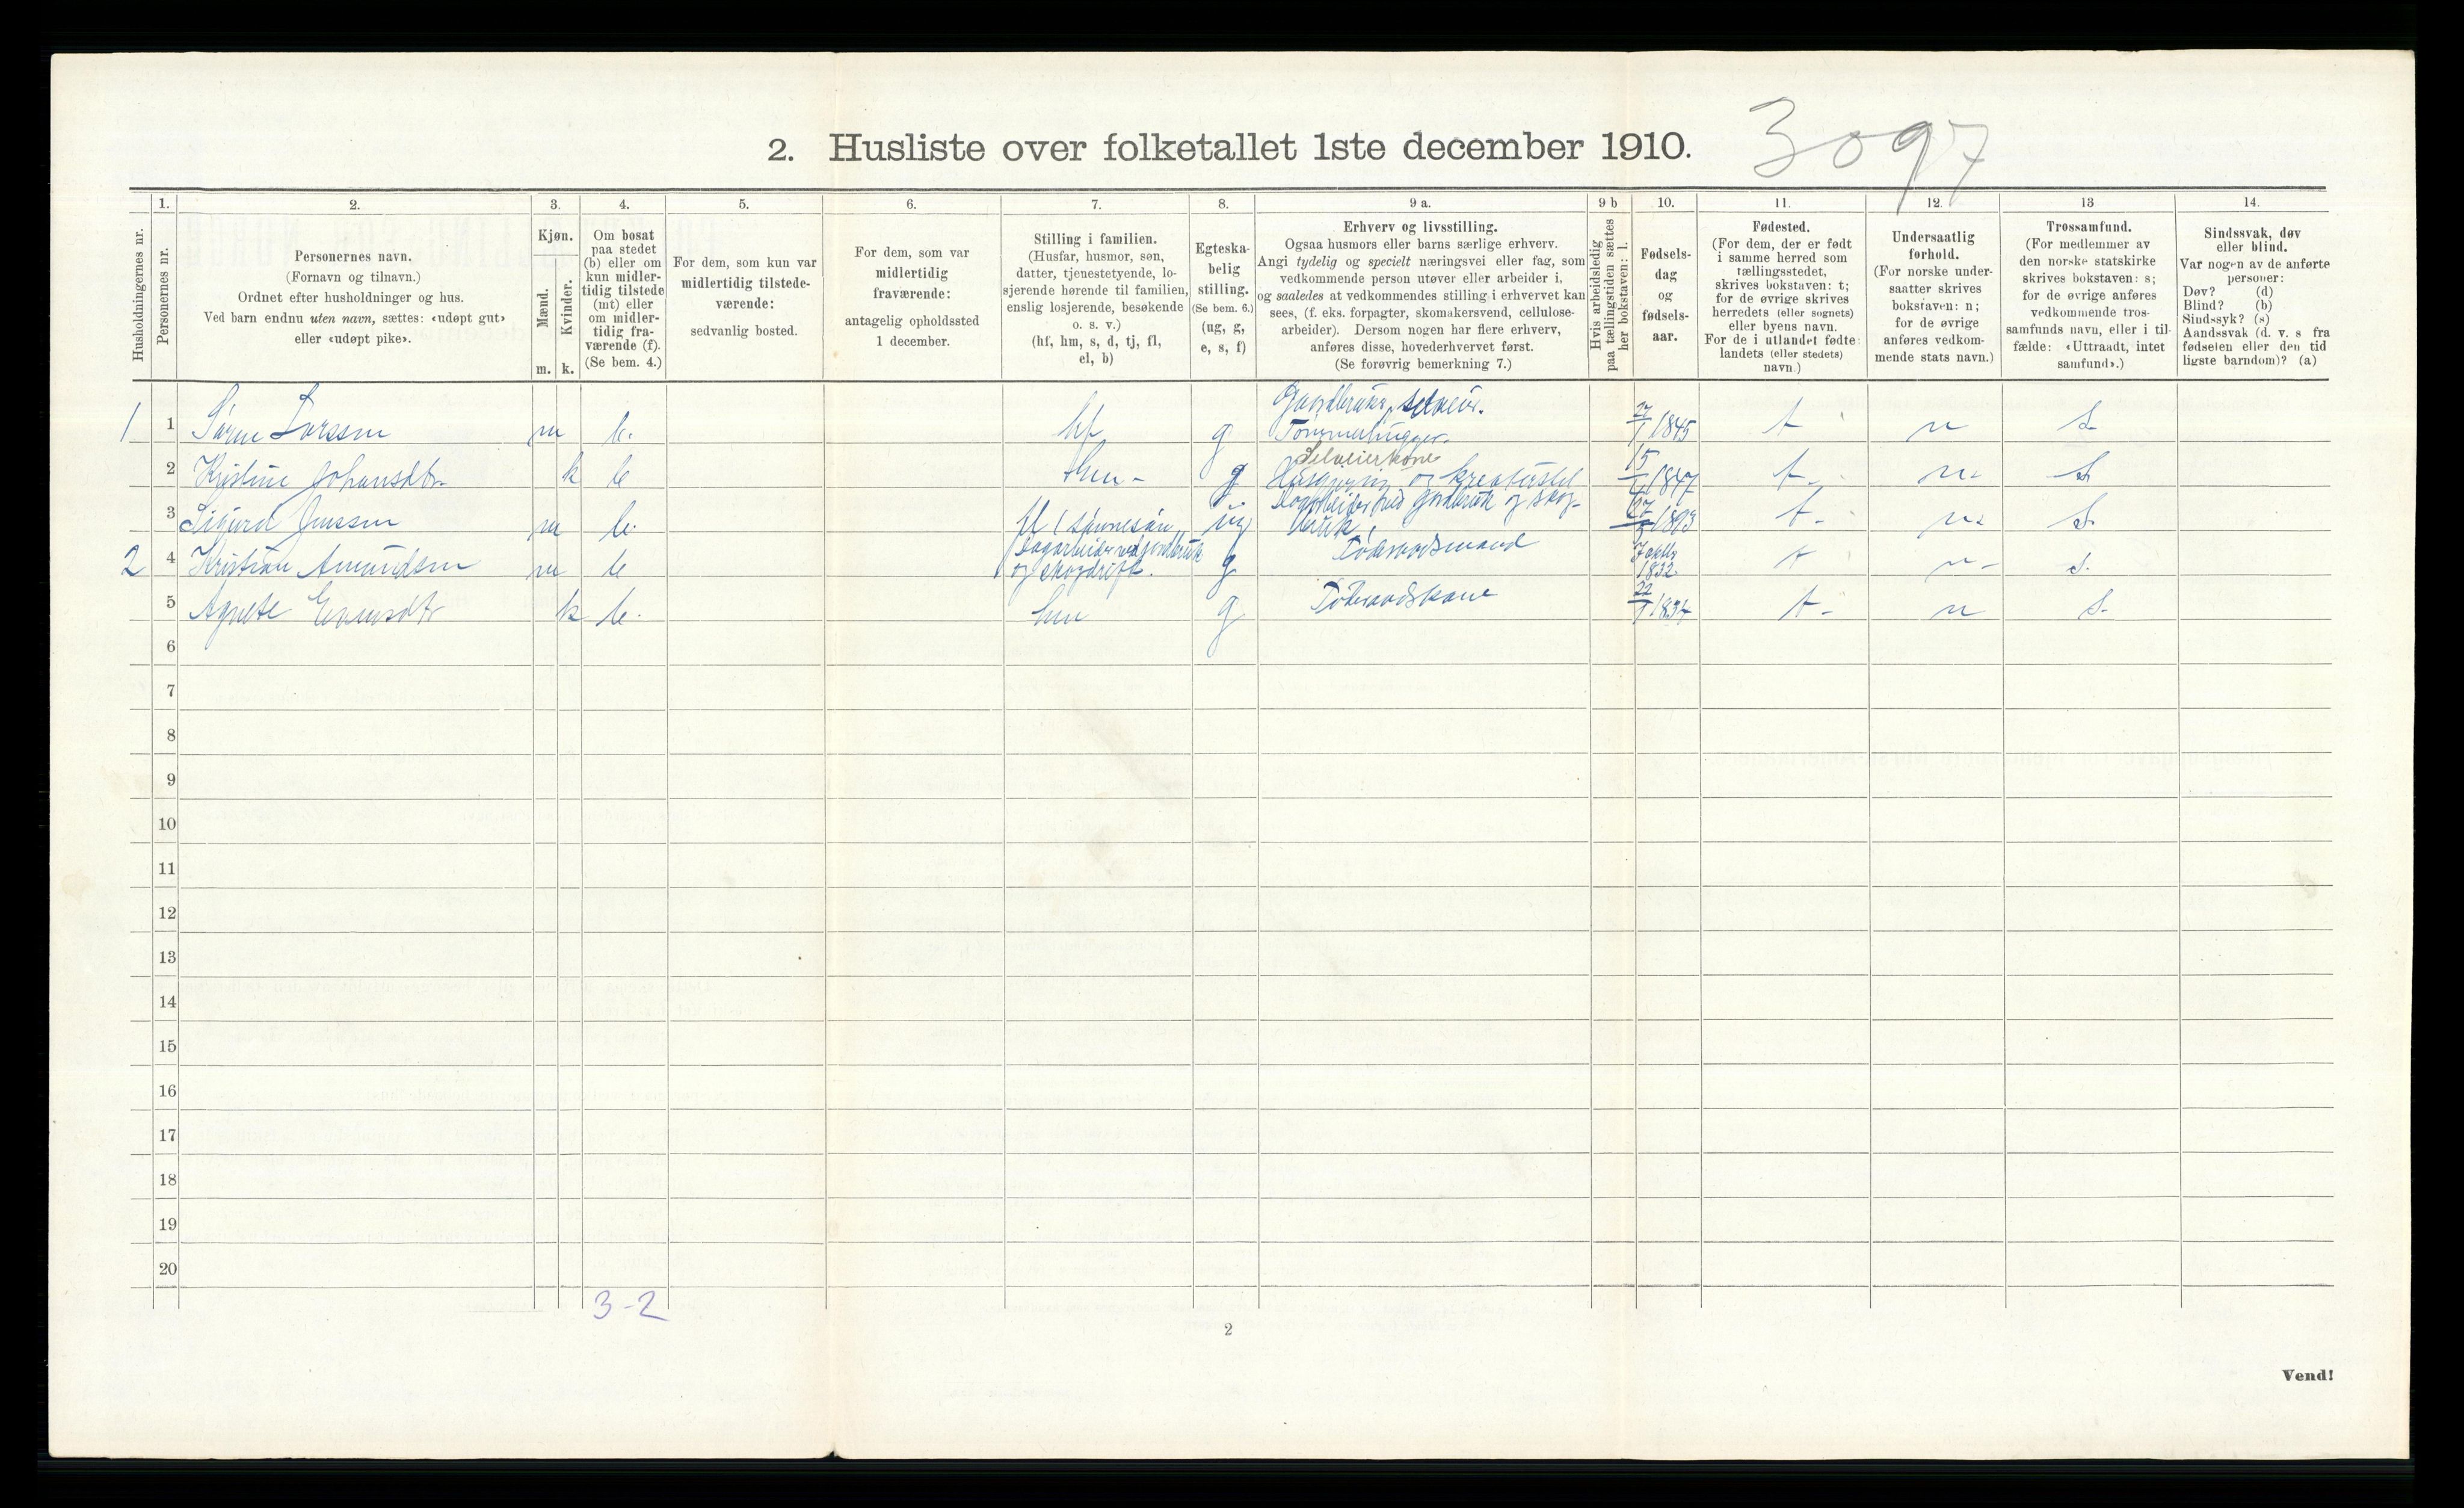 2. Husliste over folketallet 1ste december 1910.
3097
1. 2. 3. 4. 5. 6. 7. 8. 9 a. 9 b 10. 11. 12. 13 14.
Husholdningernes nr.
Personernes nr.
Personernes navn.
(Fornavn og tilnavn.)
Ordnet efter husholdninger og hus.
Ved barn endnu uten navn, sættes: «udøpt gut»
eller «udøpt pike».
Kjøn.
Mænd.
Kvinder.
m. k.
Om bosat
paa stedet
(b) eller om
kun midler-
tidig tilstede
(mt) eller
om midler-
tidig fra-
værende (f).
(Se bem. 4.)
For dem, som kun var
midlertidig tilstede-
værende:
sedvanlig bosted.
For dem, som var
midlertidig
fraværende:
antagelig opholdssted
1 december.
Stilling i familien.
(Husfar, husmor, søn,
datter, tjenestetyende, lo-
sjerende hørende til familien,
enslig losjerende, besøkende
o. s. v.)
(hf, hm, s, d, tj, fl,
el, b)
Egteska-
belig
stilling.
(Se bem. 6.)
(ug, g,
e, s, f)
Erhverv og livsstilling.
Ogsaa husmors eller barns særlige erhverv.
Angi tydelig og specielt næringsvei eller fag, som
vedkommende person utøver eller arbeider i,
og saaledes at vedkommendes stilling i erhvervet kan
sees, (f. eks. forpagter, skomakersvend, cellulose-
arbeider). Dersom nogen har flere erhverv,
anføres disse, hovederhvervet først.
(Se forøvrig bemerkning 7.)
Hvis arbeidsledig
paa tællingstiden sættes
her bokstaven: l.
Fødsels-
dag
og
fødsels-
aar.
Fødested.
(For dem, der er født
i samme herred som
tællingsstedet,
skrives bokstaven: t;
for de øvrige skrives
herredets (eller sognets)
eller byens navn.
For de i utlandet fødte:
landets (eller stedets)
navn.)
Undersaatlig
forhold.
(For norske under-
saatter skrives
bokstaven: n;
for de øvrige
anføres vedkom-
mende stats navn.)
Trossamfund.
(For medlemmer av
den norske statskirke
skrives bokstaven: s;
for de øvrige anføres
vedkommende tros-
samfunds navn, eller i til-
fælde: «Uttraadt, intet
samfund».)
Sindssvak, døv
eller blind.
Var nogen av de anførte
personer:
Døv? (d)
Blind? (b)
Sindssyk? (s)
Aandssvak (d. v. s fra
fødselen eller den tid
ligste barndom)? (a)
Gardbruker, selveier.
1 1 Søren Larssen m b. hf g Tømmerhugger 27/1 1845 t n s
Selveierkone
2 Kristine Johansdtr. k b hm - g Husgjerning og kreaturstel 15/4 1847 t - n - s
Dagarbeider ved gardbruk og skog-
3 Sigurd Jenssen m b. fl (sønnesøn ug bruk. 1893 t - n - s
Dagarbeider ved jordbruk
2 4 Kristian Amundsen m b og skogdrift. g Føderaadsmand 7 oktbr 1832 t n - s.
5 Agnete Evensdtr k b. hm g Føderaadskone 22/1 1834 t - n s.
6
7
8
9
10
11
12
13
14
15
16
17
18
19
20
3-2
2
Vend!